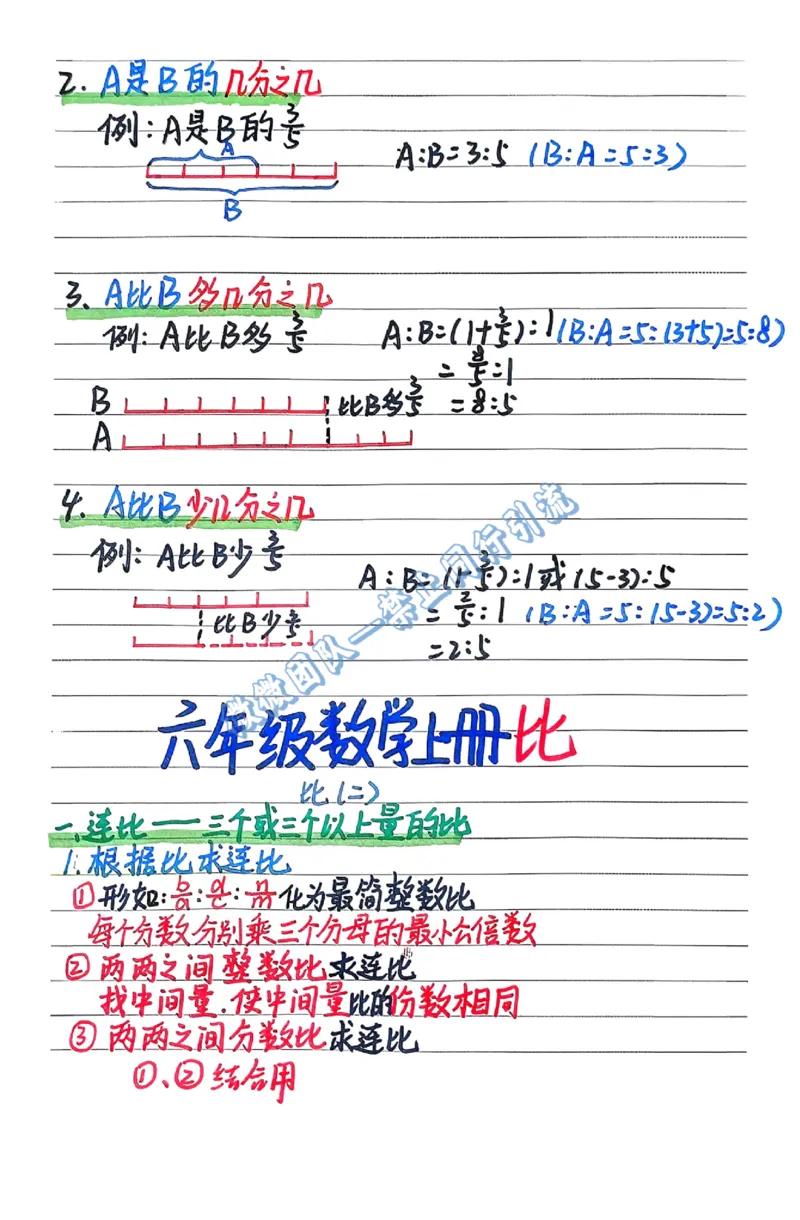 2. A是B的几分之几
例:A是B的3/5
A
A:B=3:5 (B:A=5:3)
B
3、A比B多几分之几
例:A比B多3/5
A:B=(1+3/5):1(B:A=5:(3+5)=5:8)
=8/5:1
B 比B多3/5 =8:5
A
4. A比B少几分之几
例:A比B少3/5
A:B=(1-3/5):1或(5-3):5
比B少3/5
=2/5:1 (B:A=5:(5-3)=5:2)
=2:5
微微团队—禁止同行引流
六年级数学上册比
比(二)
一、连比——三个或三个以上量的比
1.根据比求连比
①形如:b/a:d/c:n/m化为最简整数比
每个分数分别乘三个分母的最小公倍数
②两两之间整数比求连比
找中间量,使中间量比的份数相同
③两两之间分数比求连比
①、②结合用